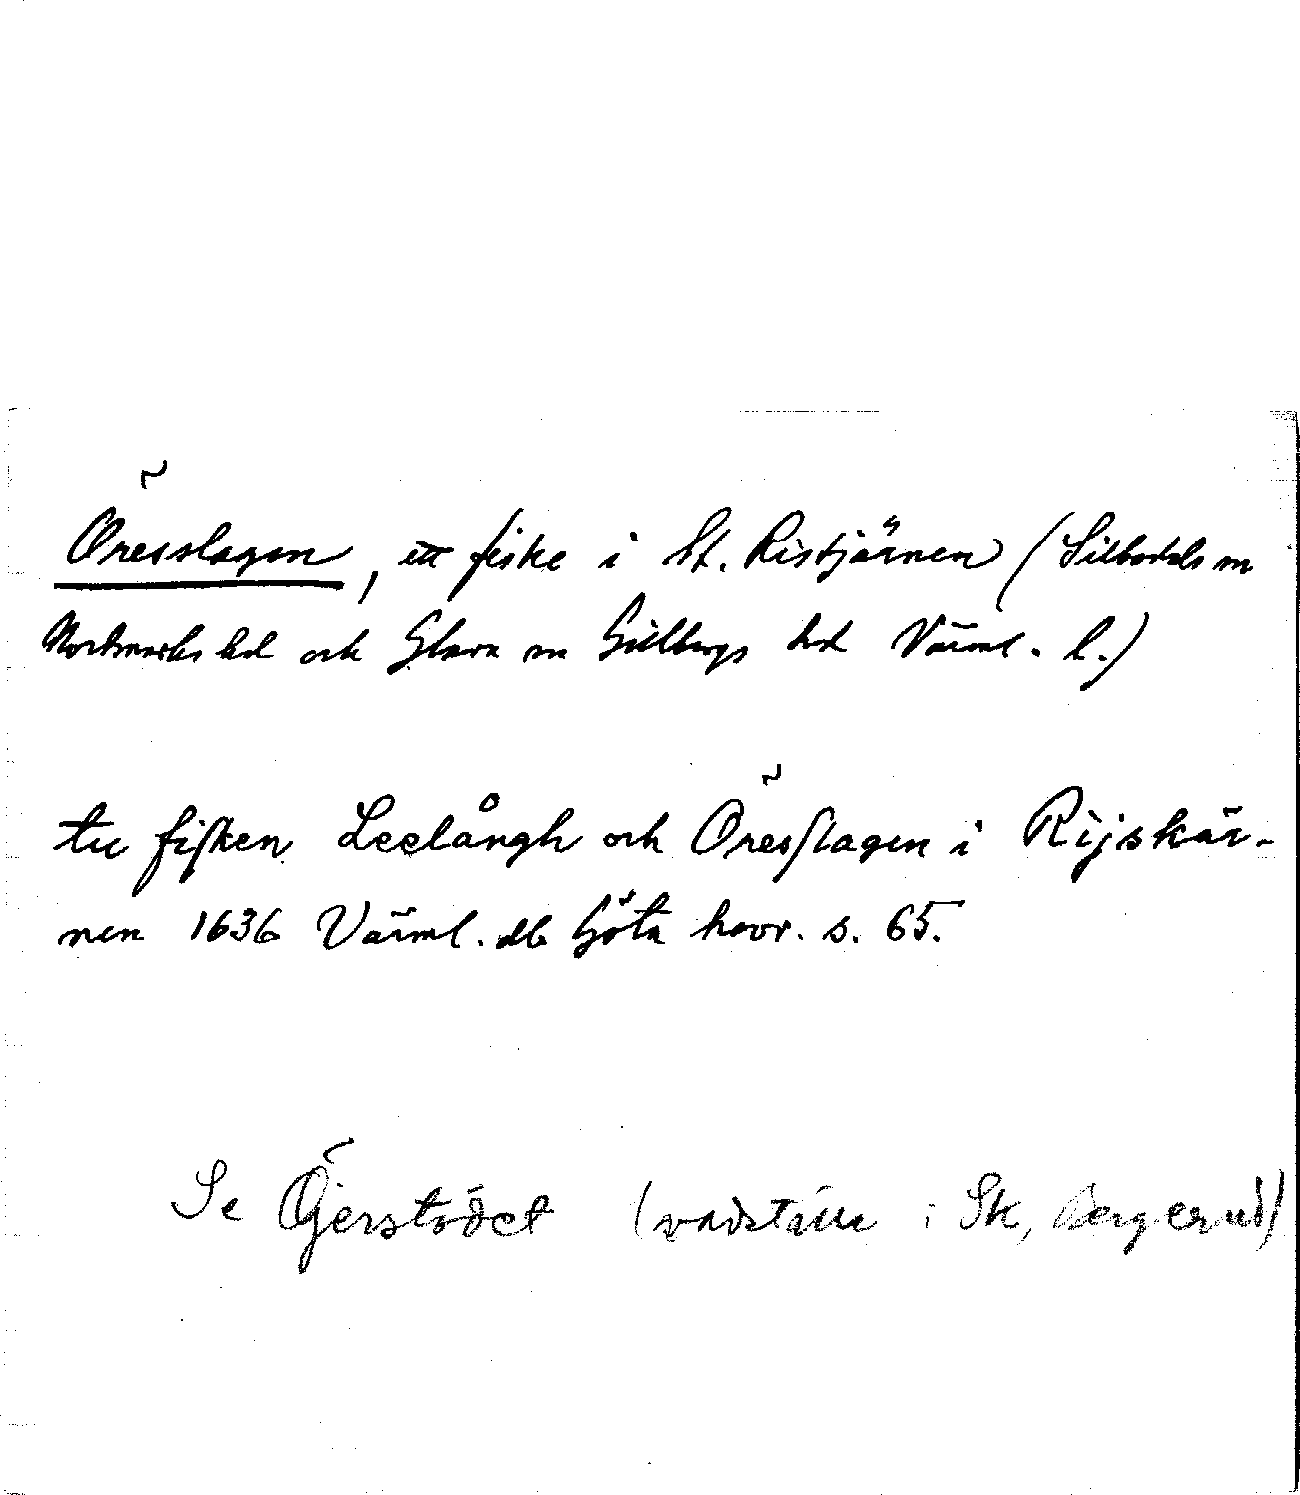 Öresslagen, ett fiske i St. Ristjärnen (Silbodals sn
Nordmarks hd och Glava sn Gillbergs hd Värml. l.)
tu fisken Leelångh och Öresslagen i Rijskär-
nen 1636 Värml. db Göta hovr. s. 65.
Se Öjerstödet (vadställe i Sk, Bergerud)